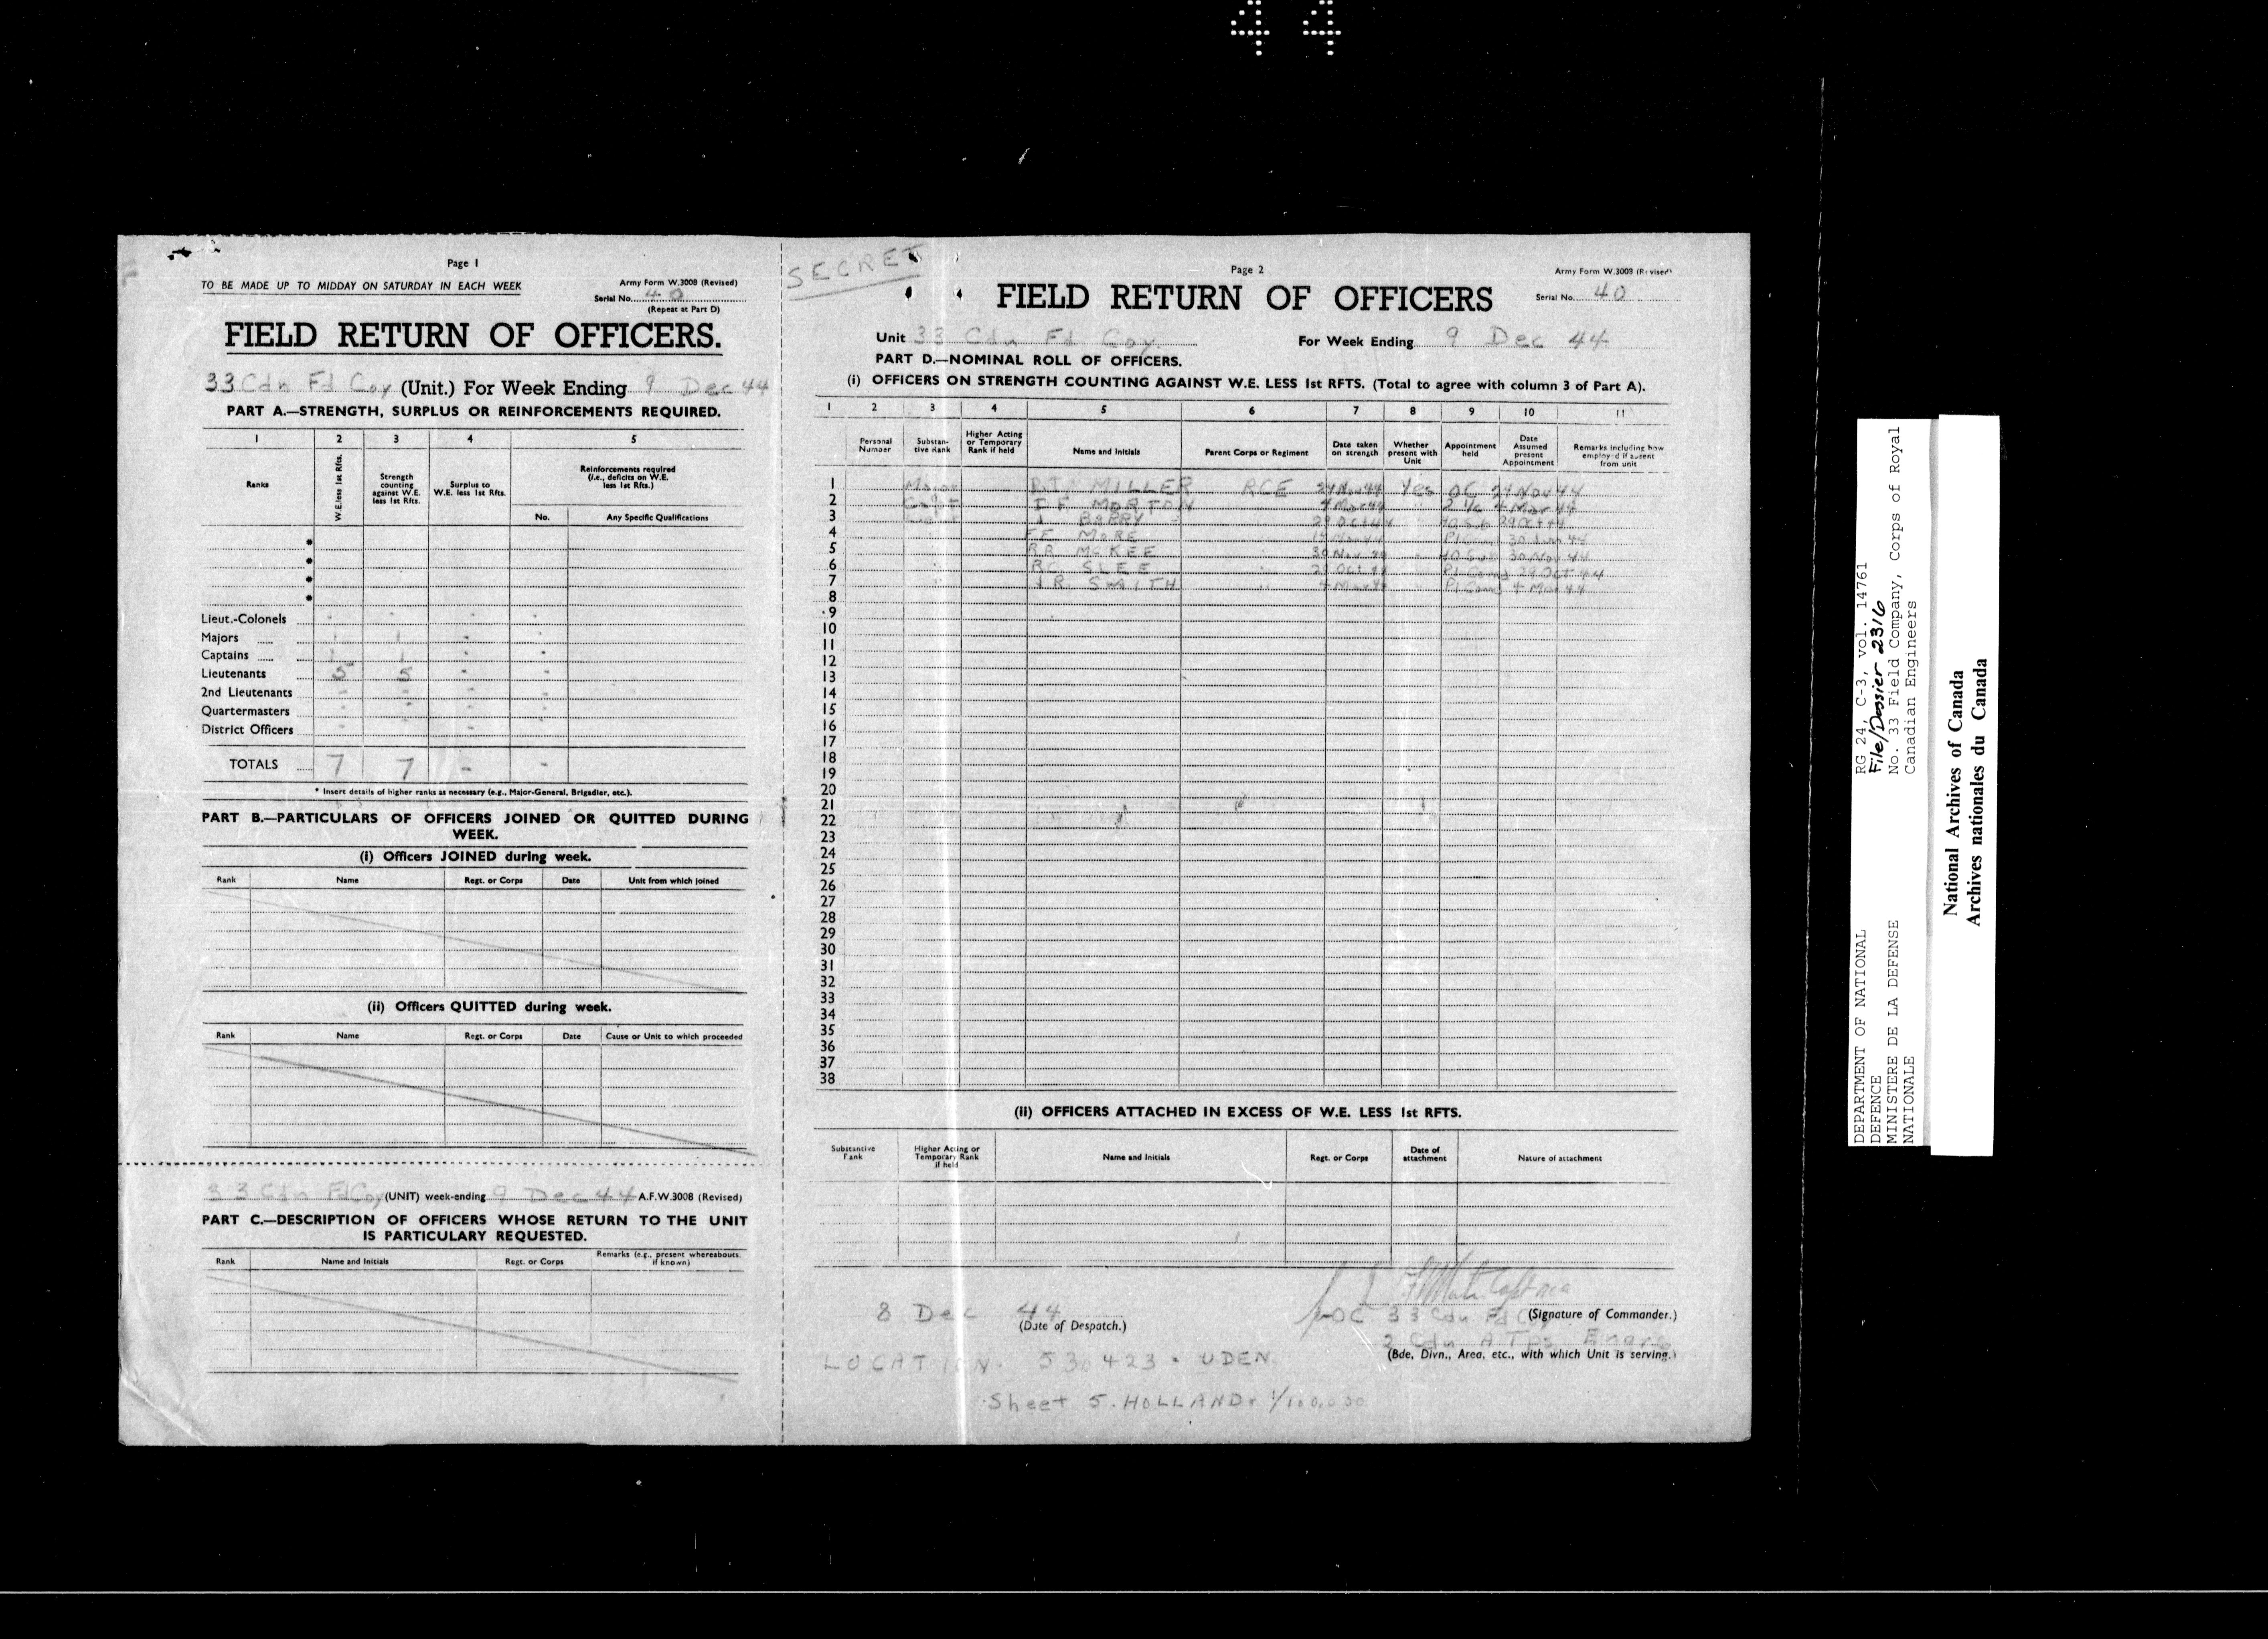 44
Page 1
TO BE MADE UP TO MIDDAY ON SATURDAY IN EACH WEEK
Army Form W.3008 (Revised)
Serial No. 40
(Repeat at Part D)
FIELD RETURN OF OFFICERS.
33 Cdn Fd Coy (Unit.) For Week Ending 9 Dec 44
PART A.—STRENGTH, SURPLUS OR REINFORCEMENTS REQUIRED.
1 2 3 4 5
Ranks
W.E. less 1st Rfts.
Strength counting against W.E. less 1st Rfts.
Surplus to W.E. less 1st Rfts.
Reinforcements required (i.e., deficits on W.E. less 1st Rfts.)
No. Any Specific Qualifications
Lieut.-Colonels
Majors 1 1 -
Captains 1 1 - -
Lieutenants 5 5 - -
2nd Lieutenants - - - -
Quartermasters
District Officers
TOTALS 7 7 - -
* Insert details of higher ranks as necessary (e.g., Major-General, Brigadier, etc.).
PART B.—PARTICULARS OF OFFICERS JOINED OR QUITTED DURING
WEEK.
(i) Officers JOINED during week.
Rank Name Regt. or Corps Date Unit from which joined
(ii) Officers QUITTED during week.
Rank Name Regt. or Corps Date Cause or Unit to which proceeded
33 Cdn Fd Coy (UNIT) week-ending 9 Dec 44 A.F.W.3008 (Revised)
PART C.—DESCRIPTION OF OFFICERS WHOSE RETURN TO THE UNIT
IS PARTICULARY REQUESTED.
Rank Name and Initials Regt. or Corps Remarks (e.g., present whereabouts, if known)
SECRET
Page 2
Army Form W.3008 (Revised)
FIELD RETURN OF OFFICERS
Serial No. 40
Unit 33 Cdn Fd Coy. For Week Ending 9 Dec 44
PART D.—NOMINAL ROLL OF OFFICERS.
(i) OFFICERS ON STRENGTH COUNTING AGAINST W.E. LESS 1st RFTS. (Total to agree with column 3 of Part A).
1 2 3 4 5 6 7 8 9 10 11
Personal Number
Substantive Rank
Higher Acting or Temporary Rank if held
Name and Initials
Parent Corps or Regiment
Date taken on strength
Whether present with Unit
Appointment held
Date Assumed present Appointment
Remarks including how employed if absent from unit
1 Major MILLER RCE 24 Nov 44 Yes OC 24 Nov 44
2 Capt MORTON 4 Mar 44 2 i/c 4 Mar 44
3 BARRY 29 Oct 44 29 Oct 44
4 MORE
5 RR McKEE 30 Nov 44 30 Nov 44
6 RC SLEE 29 Oct 44 Pl Comd 29 Oct 44
7 SMITH 4 Mar 44 Pl Comd 4 Mar 44
8
9
10
11
12
13
14
15
16
17
18
19
20
21
22
23
24
25
26
27
28
29
30
31
32
33
34
35
36
37
38
(ii) OFFICERS ATTACHED IN EXCESS OF W.E. LESS 1st RFTS.
Substantive Rank
Higher Acting or Temporary Rank if held
Name and Initials
Regt. or Corps
Date of attachment
Nature of attachment
8 Dec 44
(Date of Despatch.)
OC 33 Cdn Fd Coy (Signature of Commander.)
2 Cdn A Tps Engrs
(Bde, Divn., Area, etc., with which Unit is serving.)
LOCATION. 530423. UDEN.
Sheet 5. HOLLAND. 1/100,000
DEPARTMENT OF NATIONAL
DEFENCE
MINISTERE DE LA DEFENSE
NATIONALE
RG 24, C-3, vol. 14761
File/Dossier 2316
No. 33 Field Company, Corps of Royal
Canadian Engineers
National Archives of Canada
Archives nationales du Canada